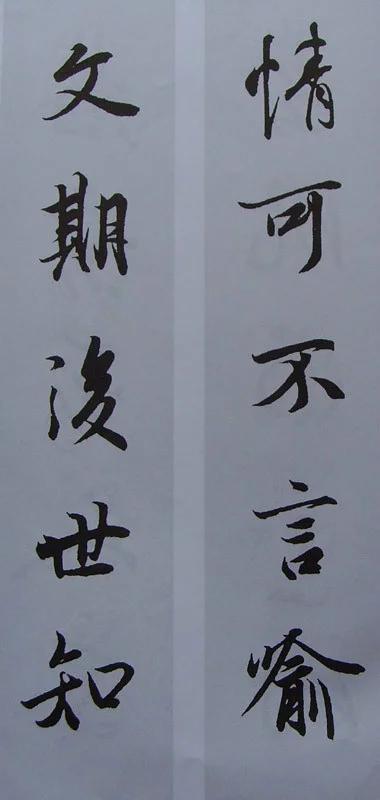 情可不言喻
文期後世知